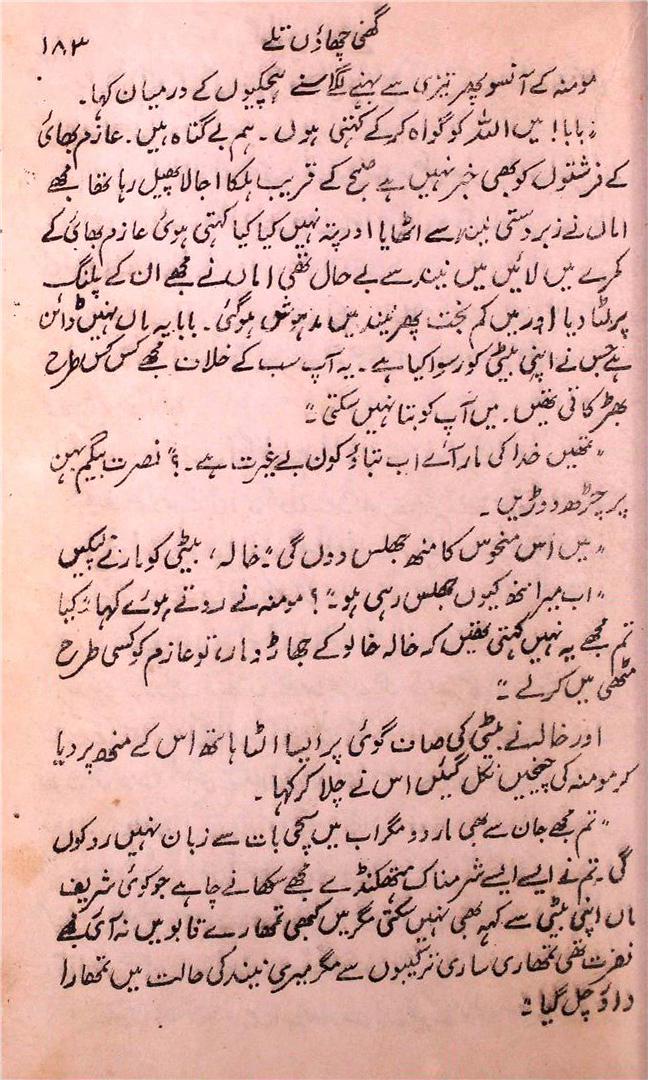 گھنی چھاؤں تلے
۱۸۳
مومنہ کے آنسو پھر تیزی سے بہنے لگے اسنے ہچکیوں کے درمیان کہا۔
"بابا! میں اللہ کو گواہ کرکے کہتی ہوں۔ ہم بے گناہ ہیں۔ عازم بھائی
کے فرشتوں کو بھی خبر نہیں ہے صبح کے قریب ہلکا اجالا پھیل رہا تھا مجھے
اماں نے زبردستی نیند سے اٹھایا اور پتہ نہیں کیا کیا کہتی ہوئی عازم بھائی کے
کمرے میں لائیں میں نیند سے بے حال تھی اماں نے مجھے ان کے پلنگ
پر لٹا دیا اور میں کم بخت پھر نیند میں مدہوش ہوگئی۔ بابا یہ ماں نہیں ڈائن
ہے جس نے اپنی بیٹی کو رسوا کیا ہے۔ یہ آپ سب کے خلاف مجھے کس کس طرح
بھڑکاتی تھیں۔ میں آپ کو بتا نہیں سکتی"
"تمھیں خدا کی مار آئے اب بتاؤ کون بے غیرت ہے۔؟" نصرت بیگم بہن
پر چڑھ دوڑیں۔
"میں اس منحوس کا منھ جھلس دوں گی" خالہ، بیٹی کو مارنے لپکیں
"اب میرا منھ کیوں جھلس رہی ہو"؟ مومنہ نے روتے ہوئے کہا "کیا
تم مجھے یہ نہیں کہتی تھیں کہ خالہ خالو کے جھاڑو مار، تو عازم کو کسی طرح
مٹھی میں کرلے"
اور خالہ نے بیٹی کی صاف گوئی پر ایسا الٹا ہاتھ اس کے منھ پر دیا
کہ مومنہ کی چیخیں نکل گئیں اس نے چلا کر کہا۔
"تم مجھے جان سے بھی مار دو مگر اب میں سچی بات سے زبان نہیں روکوں
گی۔ تم نے ایسے ایسے شرمناک ہتھکنڈے مجھے سکھانے چاہے جو کوئی شریف
ماں اپنی بیٹی سے کہہ بھی نہیں سکتی مگر میں کبھی تمھارے قابو میں نہ آئی مجھے
نفرت تھی تمھاری ساری ترکیبوں سے مگر میری نیند کی حالت میں تمھارا
داؤ چل گیا"